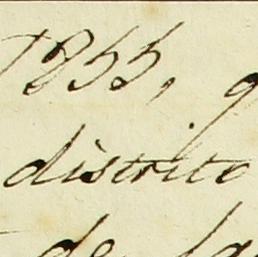 1855, q
distrito
de la